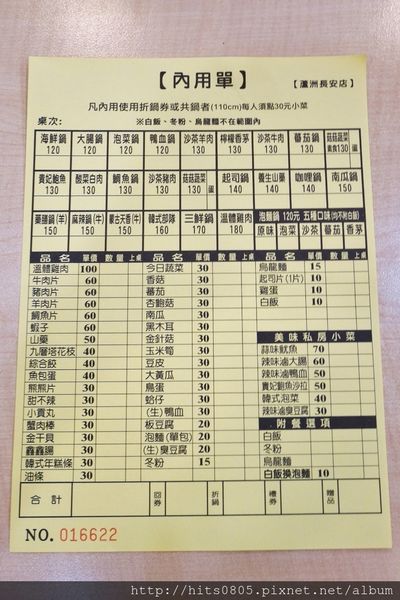 【內用單】
【蘆洲長安店】
凡內用使用折鍋券或共鍋者(110cm)每人須點30元小菜
桌次:
※白飯、冬粉、烏龍麵不在範圍內
海鮮鍋 大腸鍋 泡菜鍋 鴨血鍋 沙茶羊肉 檸檬香茅 沙茶牛肉 蕃茄鍋
120 120 120 120 130 130 130 130
貴妃鮑魚 酸菜白肉 鯛魚鍋 沙茶豬肉 菇菇蔬菜 起司鍋 養生山藥 咖哩鍋 南瓜鍋
130 130 130 130 130 蛋 140 140 140 150
藥膳鍋(羊) 麻辣鍋(牛) 蒙古天香(牛) 韓式部隊 三鮮鍋 溫體雞肉 泡麵鍋 120元 五種口味(均不附白飯)
150 150 150 160 170 180 原味 泡菜 沙茶 蕃茄 香茅
品名 單價 數量 上桌 品名 單價 數量 上桌 品名 單價 數量 上桌
溫體雞肉 100 今日蔬菜 30 烏龍麵 15
牛肉片 60 香菇 30 起司片(1片) 10
豬肉片 60 蕃茄 30 雞蛋 10
羊肉片 60 杏鮑菇 30 白飯 10
鯛魚片 60 南瓜 30
蝦子 60 黑木耳 30
山藥 50 金針菇 30 美味私房小菜
九層塔花枝 40 玉米筍 30 蒜味魷魚 70
綜合餃 40 豆皮 30 辣味滷大腸 60
魚包蛋 40 大黃瓜 30 辣味滷鴨血 50
熊熊片 30 鳥蛋 30 貴妃鮑魚沙拉 50
甜不辣 30 蛤仔 30 韓式泡菜 40
小貢丸 30 (生)鴨血 30 辣味滷臭豆腐 30
蟹肉棒 30 板豆腐 20 附餐選項
金干貝 30 泡麵(單包) 20 白飯
鑫鑫腸 30 (生)臭豆腐 20 冬粉
韓式年糕條 30 冬粉 15 烏龍麵
油條 30 白飯換泡麵 10
合計 回券 折鍋 禮券 贈品
NO. 016622
http://hits0805.pixnet.net/album